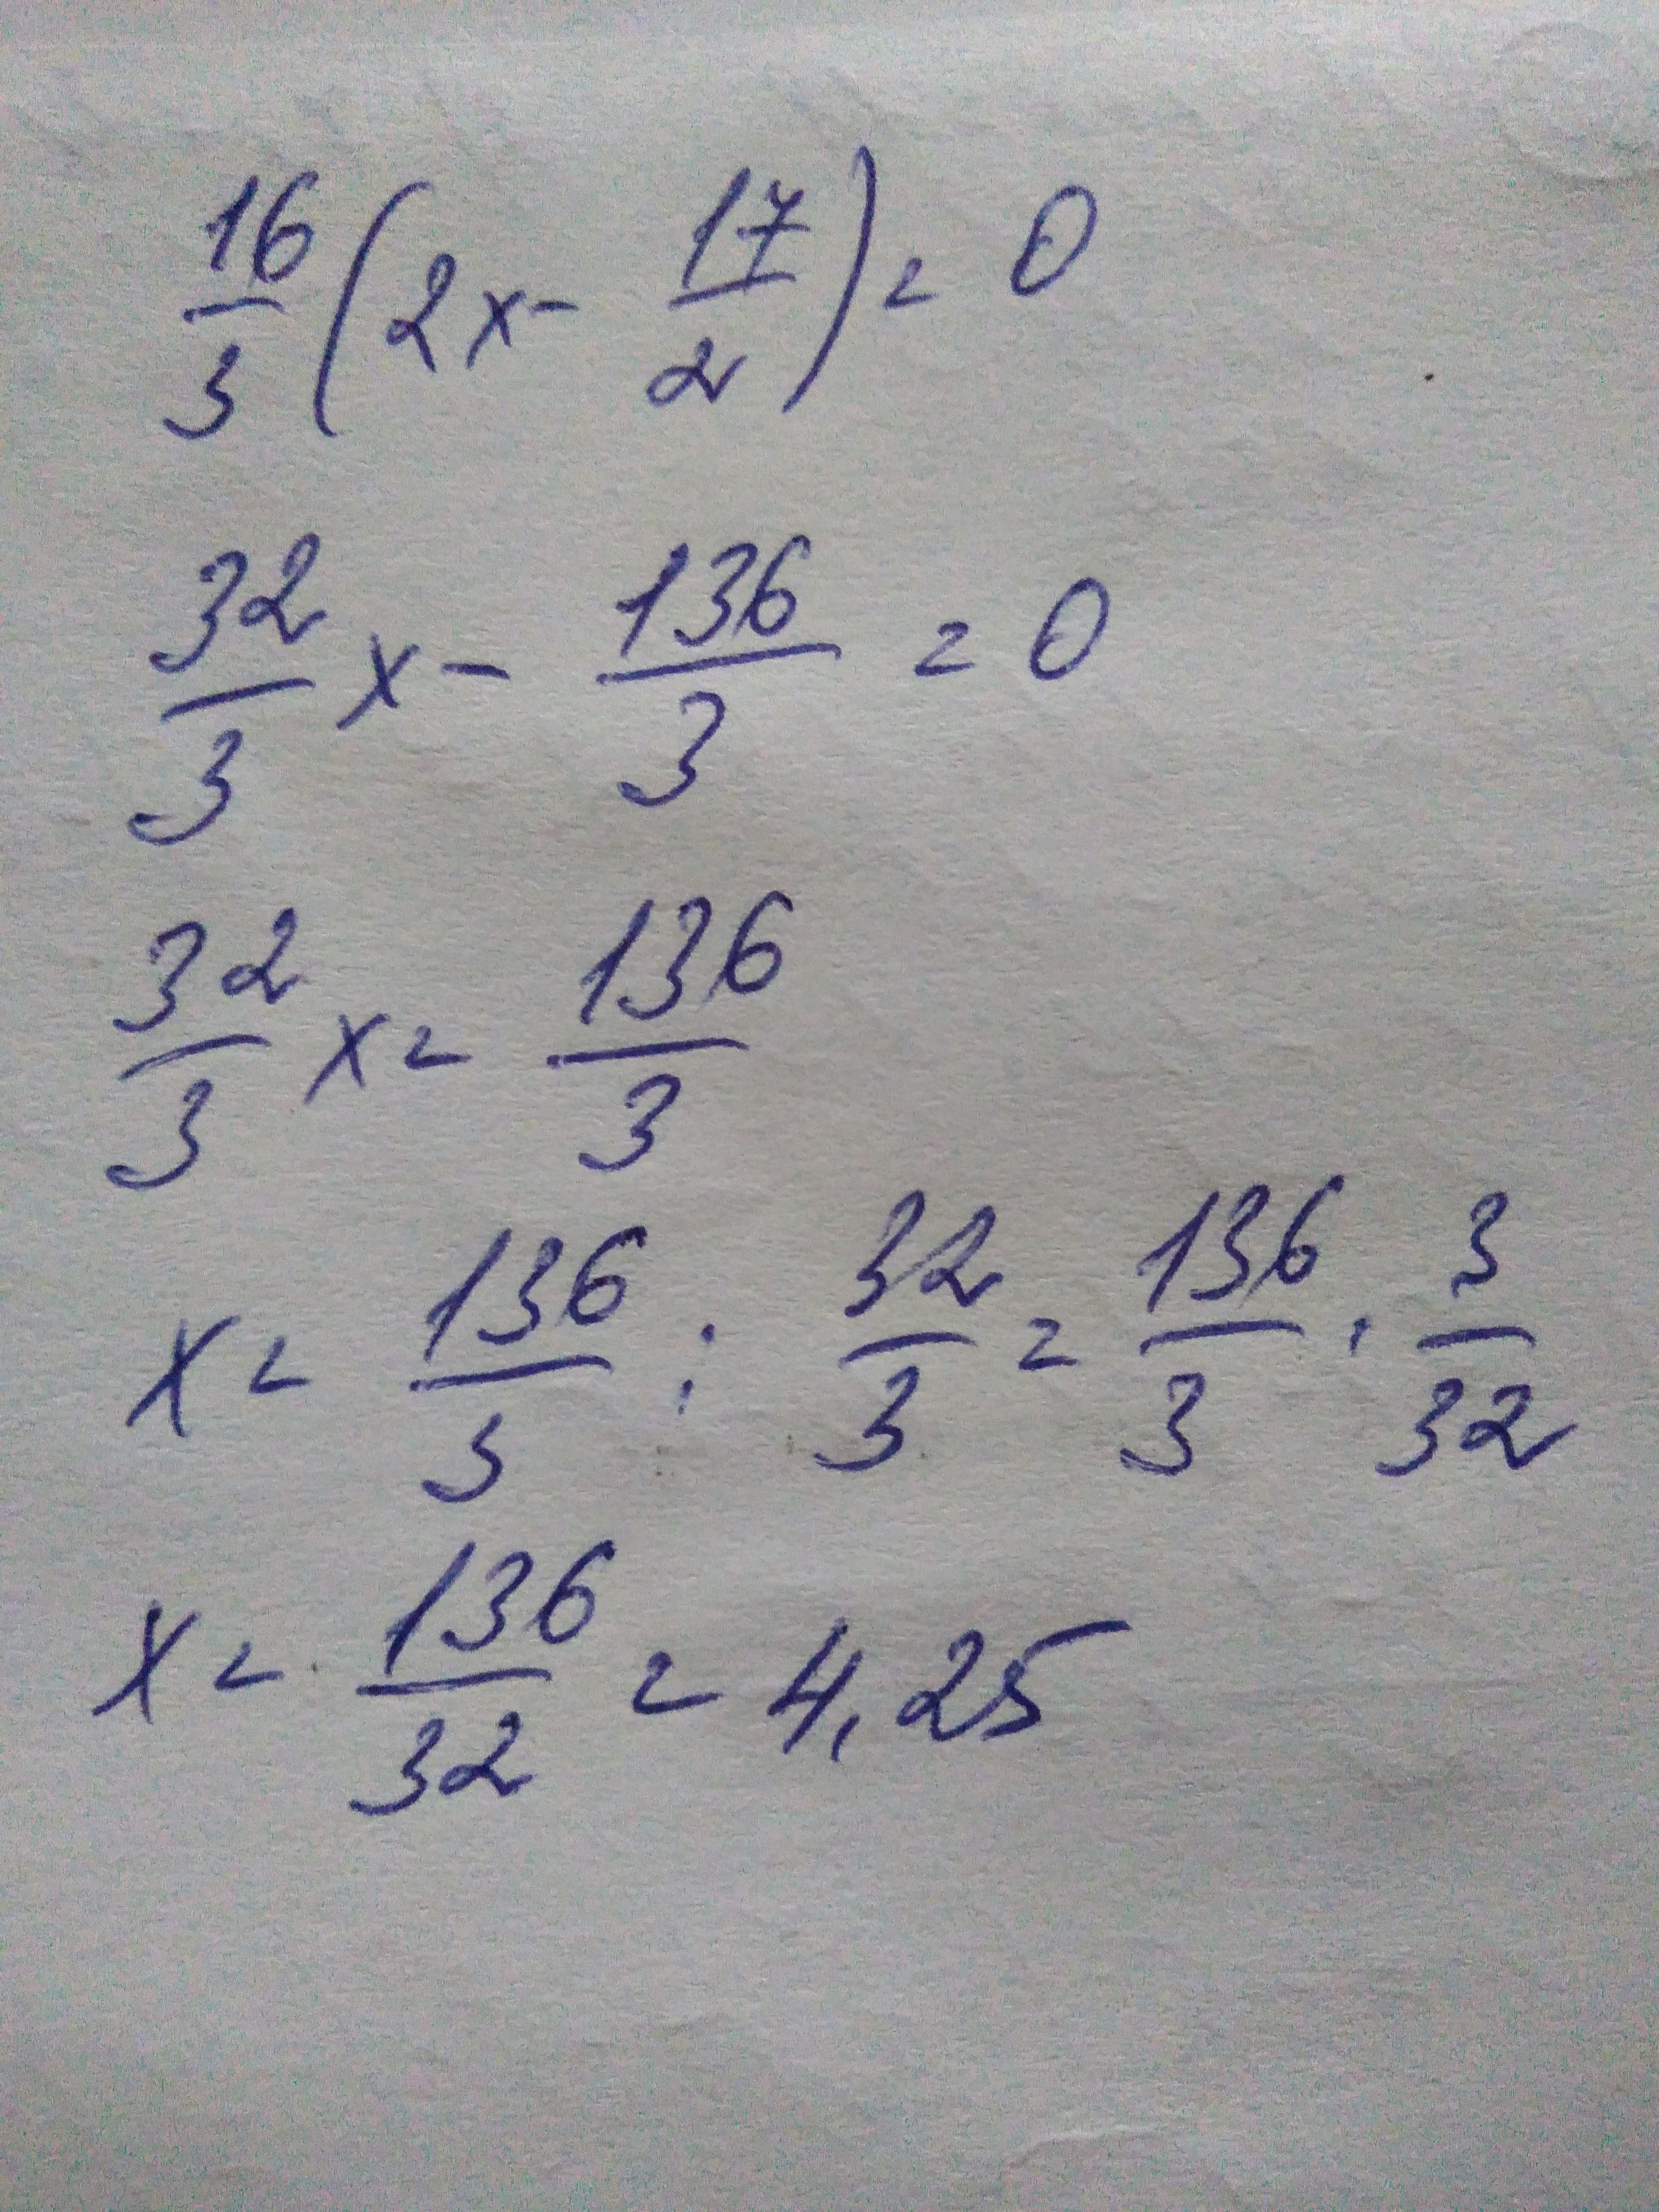 16/3 (2x - 17/2) = 0
32/3 x - 136/3 = 0
32/3 x = 136/3
x = 136/3 : 32/3 = 136/3 · 3/32
x = 136/32 = 4,25